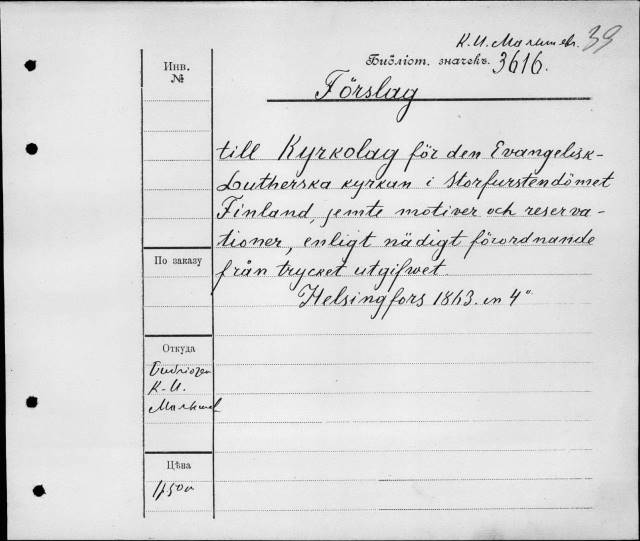 К. И. Малышев. 39
Библіот. значекъ. 3616.
Инв.
№
Förslag
till Kyrkolag för den Evangelisk-
Lutherska kyrkan i Storfurstendömet
Finland, jemte motiver och reserva-
tioner, enligt nådigt förordnande
från trycket utgifwet.
Helsingfors 1863. in 4°
По заказу
Откуда
К. И.
Малышев
Цѣна